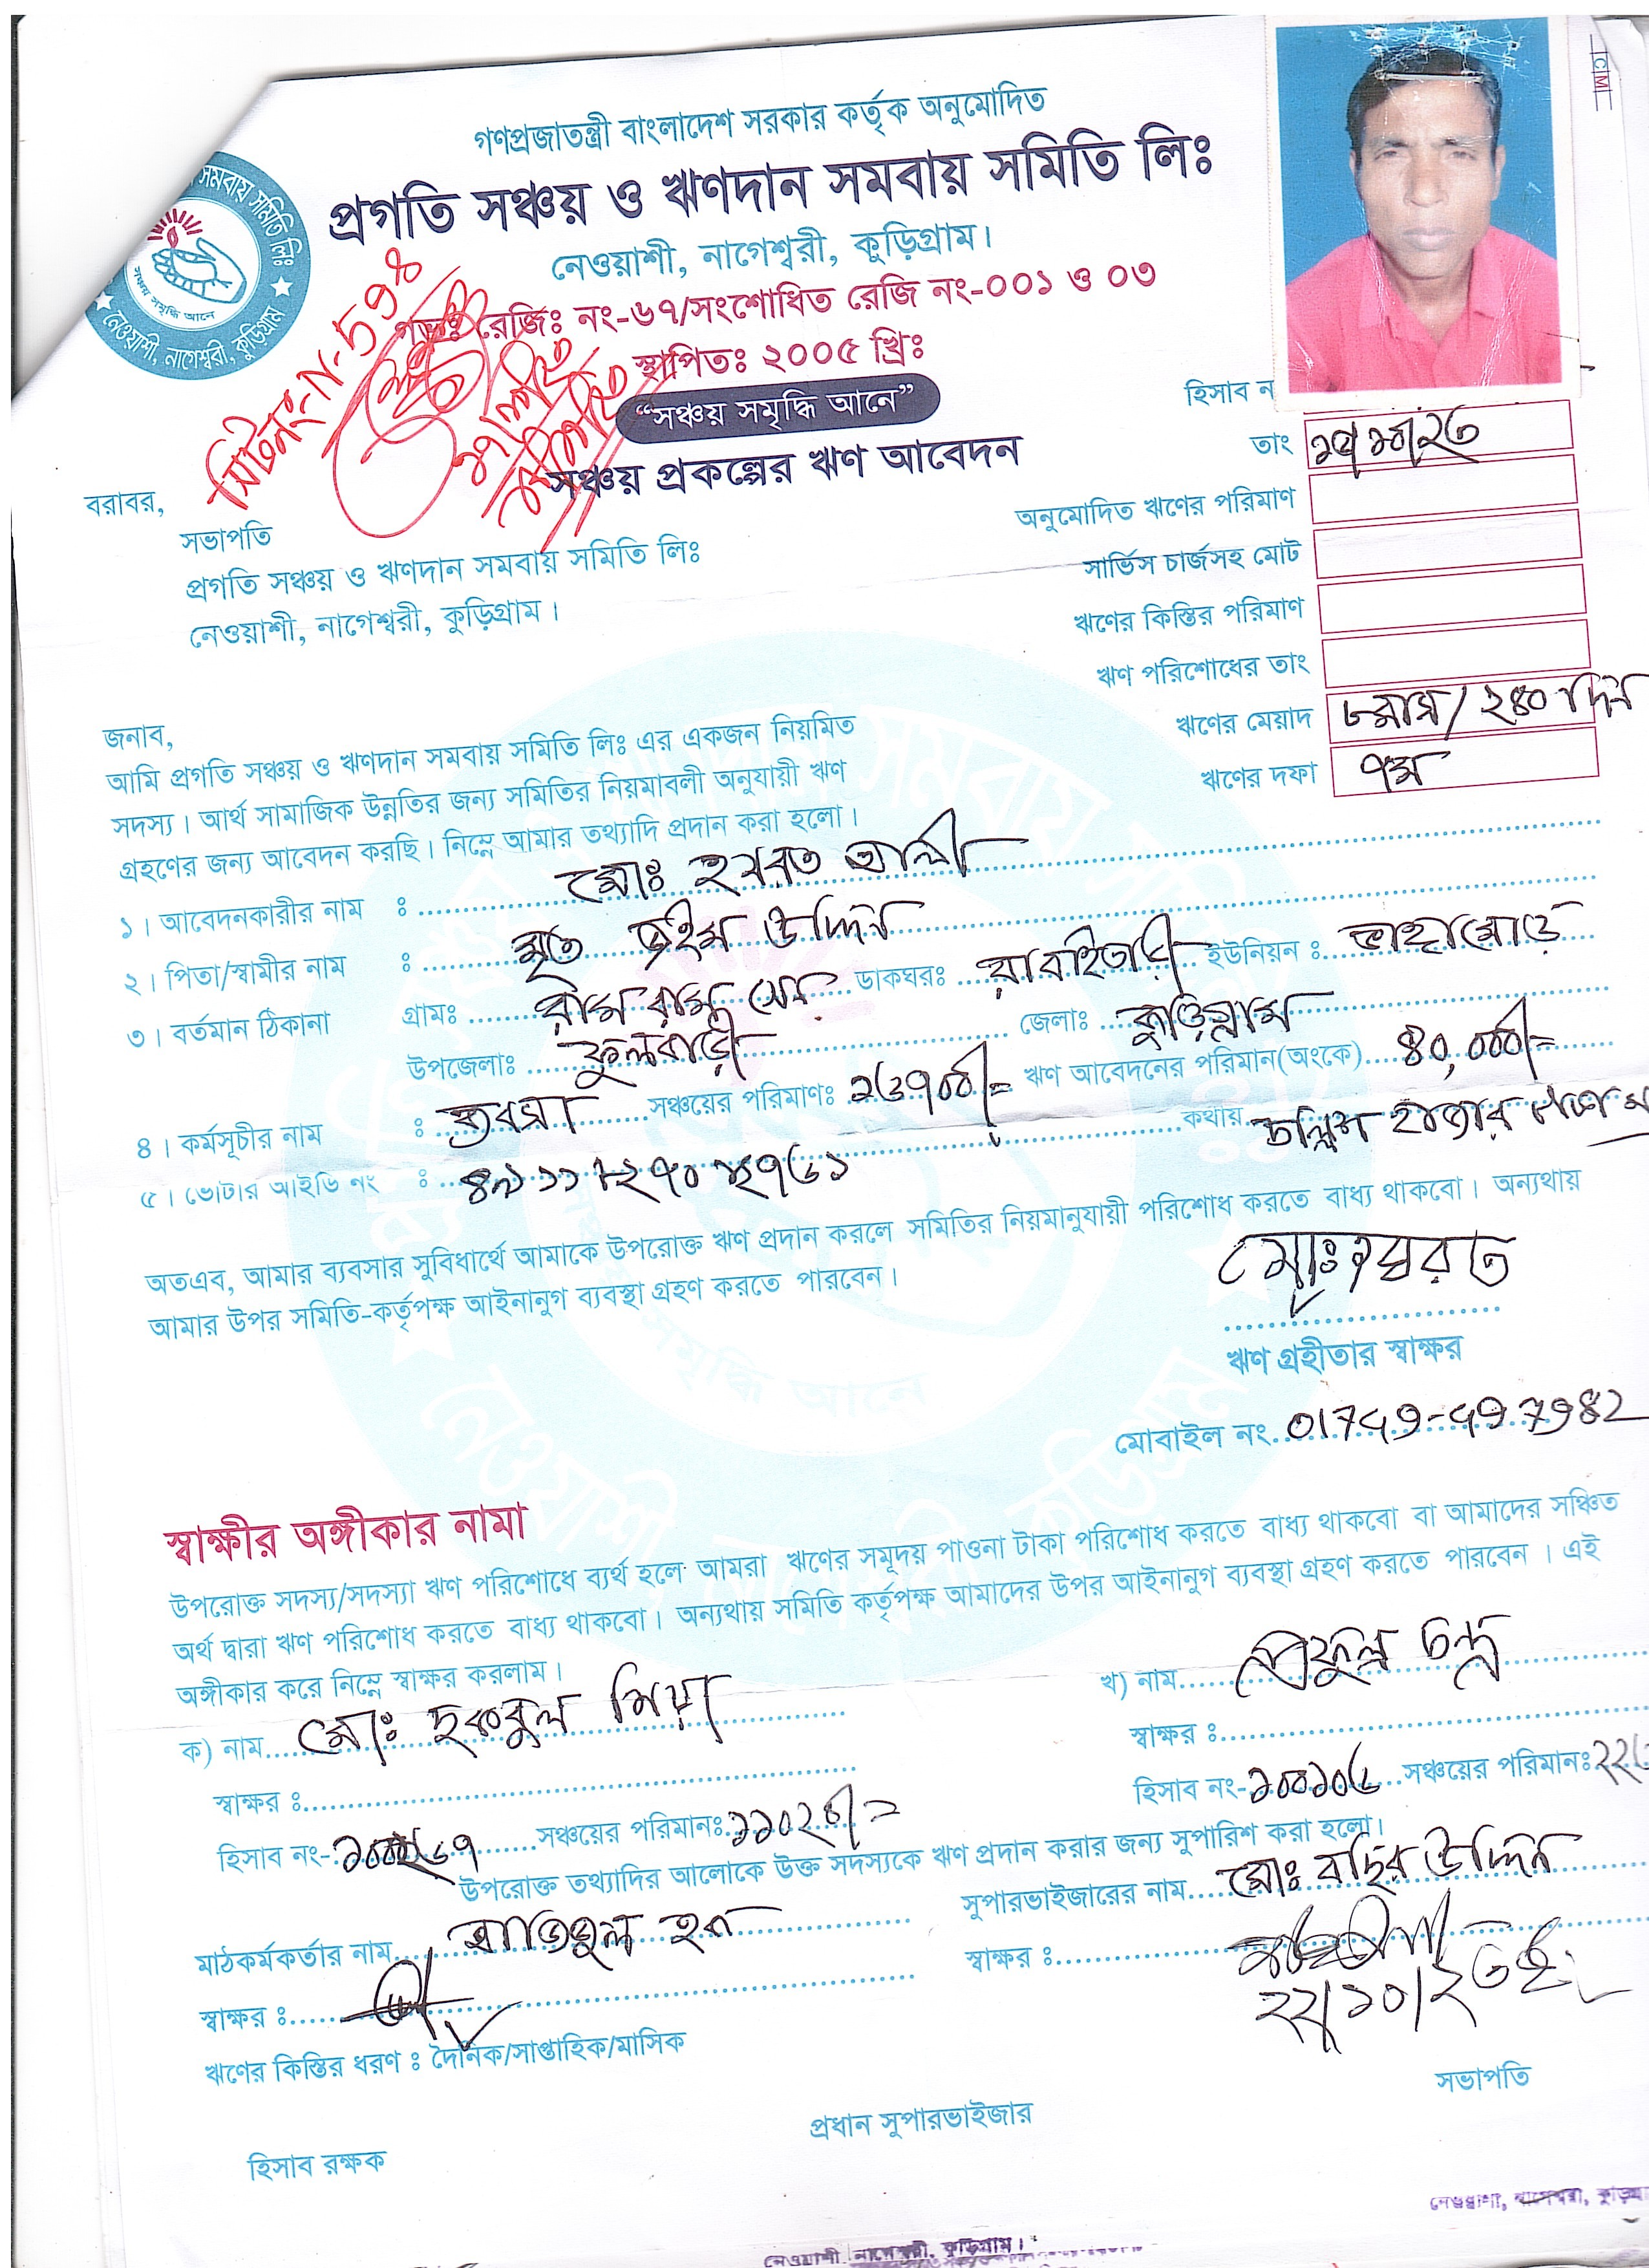 গণপ্রজাতন্ত্রী বাংলাদেশ সরকার কর্তৃক অনুমোদিত
প্রগতি সঞ্চয় ও ঋণদান সমবায় সমিতি লিঃ
নেওয়াশী, নাগেশ্বরী, কুড়িগ্রাম।
রেজিঃ নং-৬৭/সংশোধিত রেজি নং-০০১ ও ০৩
স্থাপিতঃ ২০০৫ খ্রিঃ
“সঞ্চয় সমৃদ্ধি আনে”
সঞ্চয় প্রকল্পের ঋণ আবেদন
সমবায় সমিতি লিঃ
সঞ্চয় সমৃদ্ধি আনে
নেওয়াশী, নাগেশ্বরী, কুড়িগ্রাম
হিসাব ন
তাং
অনুমোদিত ঋণের পরিমাণ
সার্ভিস চার্জসহ মোট
ঋণের কিস্তির পরিমাণ
ঋণ পরিশোধের তাং
ঋণের মেয়াদ ৮মাস/২৪০ দিন
ঋণের দফা ৭ম
বরাবর,
সভাপতি
প্রগতি সঞ্চয় ও ঋণদান সমবায় সমিতি লিঃ
নেওয়াশী, নাগেশ্বরী, কুড়িগ্রাম।
জনাব,
আমি প্রগতি সঞ্চয় ও ঋণদান সমবায় সমিতি লিঃ এর একজন নিয়মিত
সদস্য। আর্থ সামাজিক উন্নতির জন্য সমিতির নিয়মাবলী অনুযায়ী ঋণ
গ্রহণের জন্য আবেদন করছি। নিম্নে আমার তথ্যাদি প্রদান করা হলো।
১। আবেদনকারীর নাম ঃ মোঃ হযরত আলী
২। পিতা/স্বামীর নাম ঃ মৃত উদ্দিন
৩। বর্তমান ঠিকানা গ্রামঃ রাম রাম সেন ডাকঘরঃ রাবাইতারী ইউনিয়ন ঃ ভাঙ্গামোড়
উপজেলাঃ ফুলবাড়ী জেলাঃ কুড়িগ্রাম
৪। কর্মসূচীর নাম ঃ ব্যবসা সঞ্চয়ের পরিমাণঃ ঋণ আবেদনের পরিমান(অংকে) ৪০,০০০/=
৫। ভোটার আইডি নং ঃ কথায় চল্লিশ হাজার টাকা মাত্র
অতএব, আমার ব্যবসার সুবিধার্থে আমাকে উপরোক্ত ঋণ প্রদান করলে সমিতির নিয়মানুযায়ী পরিশোধ করতে বাধ্য থাকবো। অন্যথায়
আমার উপর সমিতি-কর্তৃপক্ষ আইনানুগ ব্যবস্থা গ্রহণ করতে পারবেন।
মোঃ হযরত
ঋণ গ্রহীতার স্বাক্ষর
মোবাইল নং
স্বাক্ষীর অঙ্গীকার নামা
উপরোক্ত সদস্য/সদস্যা ঋণ পরিশোধে ব্যর্থ হলে আমরা ঋণের সমূদয় পাওনা টাকা পরিশোধ করতে বাধ্য থাকবো বা আমাদের সঞ্চিত
অর্থ দ্বারা ঋণ পরিশোধ করতে বাধ্য থাকবো। অন্যথায় সমিতি কর্তৃপক্ষ আমাদের উপর আইনানুগ ব্যবস্থা গ্রহণ করতে পারবেন । এই
অঙ্গীকার করে নিম্নে স্বাক্ষর করলাম।
ক) নাম মোঃ মিয়া
স্বাক্ষর ঃ
হিসাব নং- সঞ্চয়ের পরিমানঃ
খ) নাম প্রফুল্ল চন্দ্র
স্বাক্ষর ঃ
হিসাব নং- সঞ্চয়ের পরিমানঃ
উপরোক্ত তথ্যাদির আলোকে উক্ত সদস্যকে ঋণ প্রদান করার জন্য সুপারিশ করা হলো।
মাঠকর্মকর্তার নাম হক
স্বাক্ষর ঃ
সুপারভাইজারের নাম মোঃ বছির উদ্দিন
স্বাক্ষর ঃ
২২/১০/২৩ ইং
ঋণের কিস্তির ধরণ ঃ দৈনিক/সাপ্তাহিক/মাসিক
হিসাব রক্ষক
প্রধান সুপারভাইজার
সভাপতি
নেওয়াশী, নাগেশ্বরী, কুড়িগ্রাম
নেওয়াশী, নাগেশ্বরী, কুড়িগ্রাম।